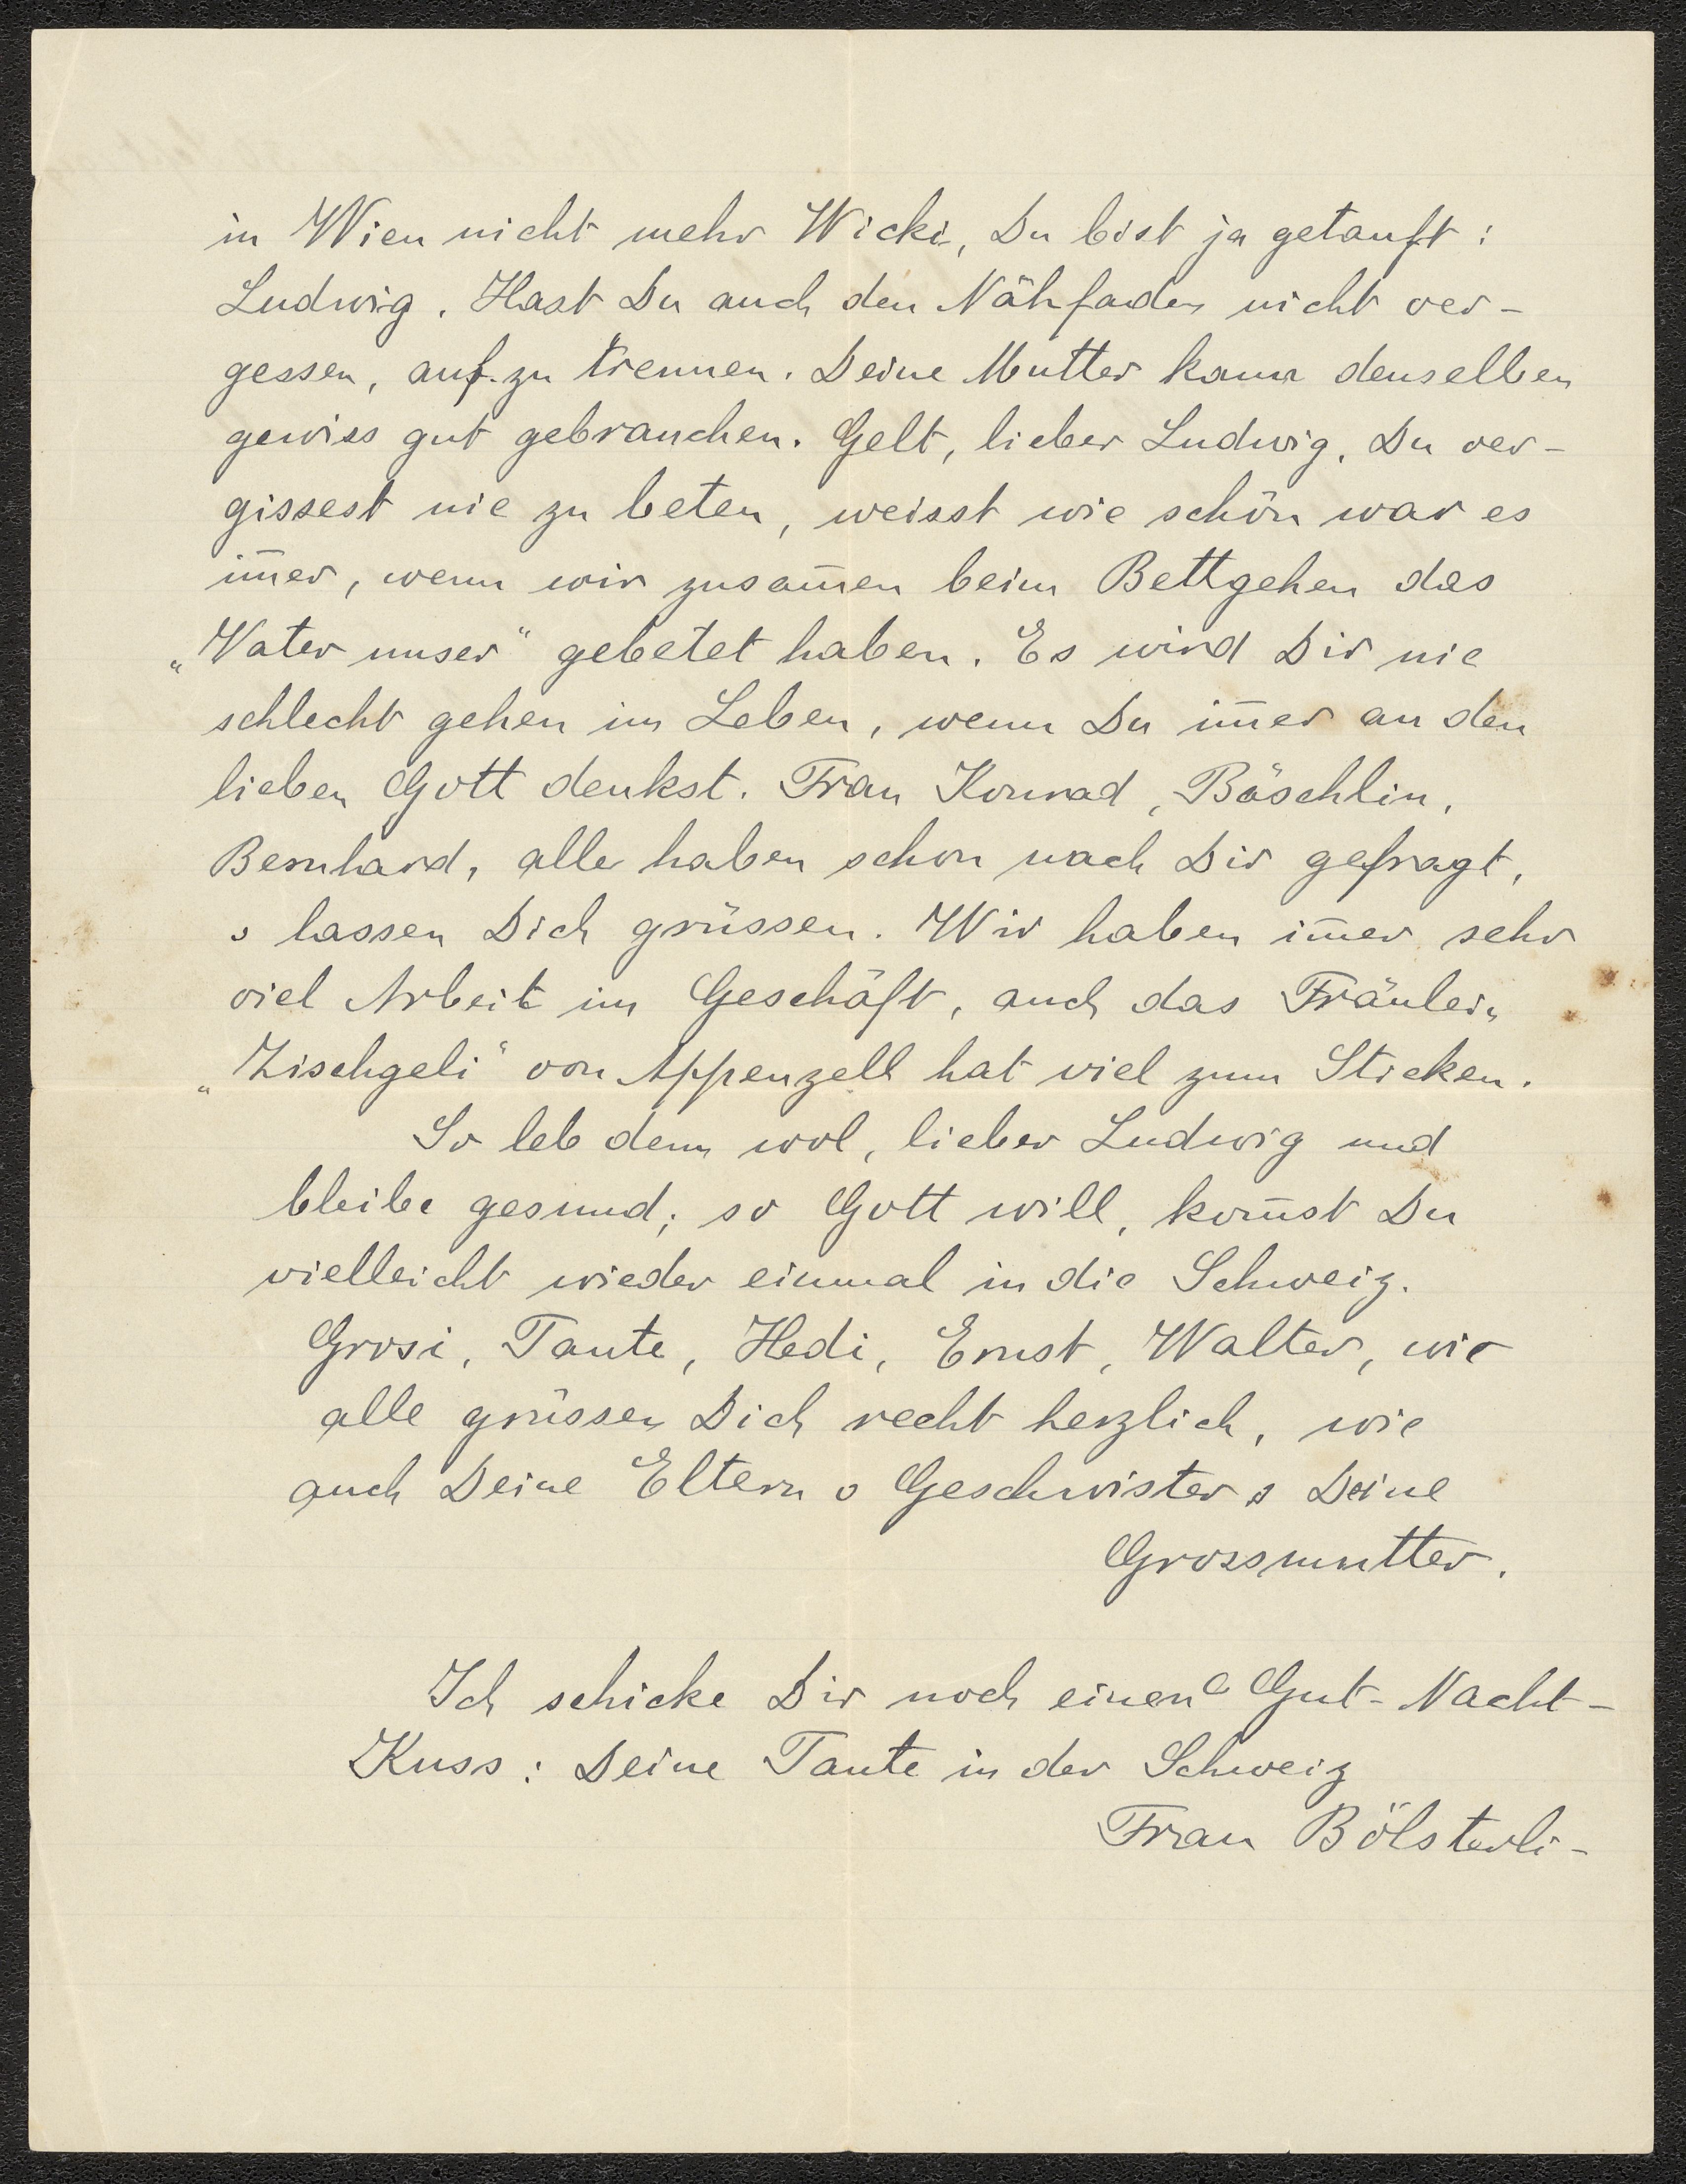 in Wien nicht mehr Wicki, Du bist ja getauft:
Ludwig. Hast Du auch den Nähfaden nicht ver-
gessen, auf zu trennen. Deine Mutter kann denselben
gewiss gut gebrauchen. Gelt, lieber Ludwig, Du ver-
gissest nie zu beten, weisst wie schön war es
im̅er, wenn wir zusam̅en beim Bettgehen das
„Vater unser“ gebetet haben. Es wird Dir nie
schlecht gehen im Leben, wenn Du im̅er an den
lieben Gott denkst. Frau Konrad, Böschlin,
Bernhard, alle haben schon nach Dir gefragt,
lassen Dich grüssen. Wir haben im̅er sehr
viel Arbeit im Geschäft, auch das Fräulein
„Zischgeli“ von Appenzell hat viel zum Sticken.
So leb denn wol, lieber Ludwig und
bleibe gesund; so Gott will, kom̅st Du
vielleicht wieder einmal in die Schweiz.
Grosi, Tante, Hedi, Ernst, Walter, wir
alle grüssen Dich recht herzlich, wie
auch Deine Eltern Geschwister Deine
Grossmutter.
Ich schicke Dir noch einen Gut-Nacht-
Kuss: Deine Tante in der Schweiz
Frau Bölsterli-